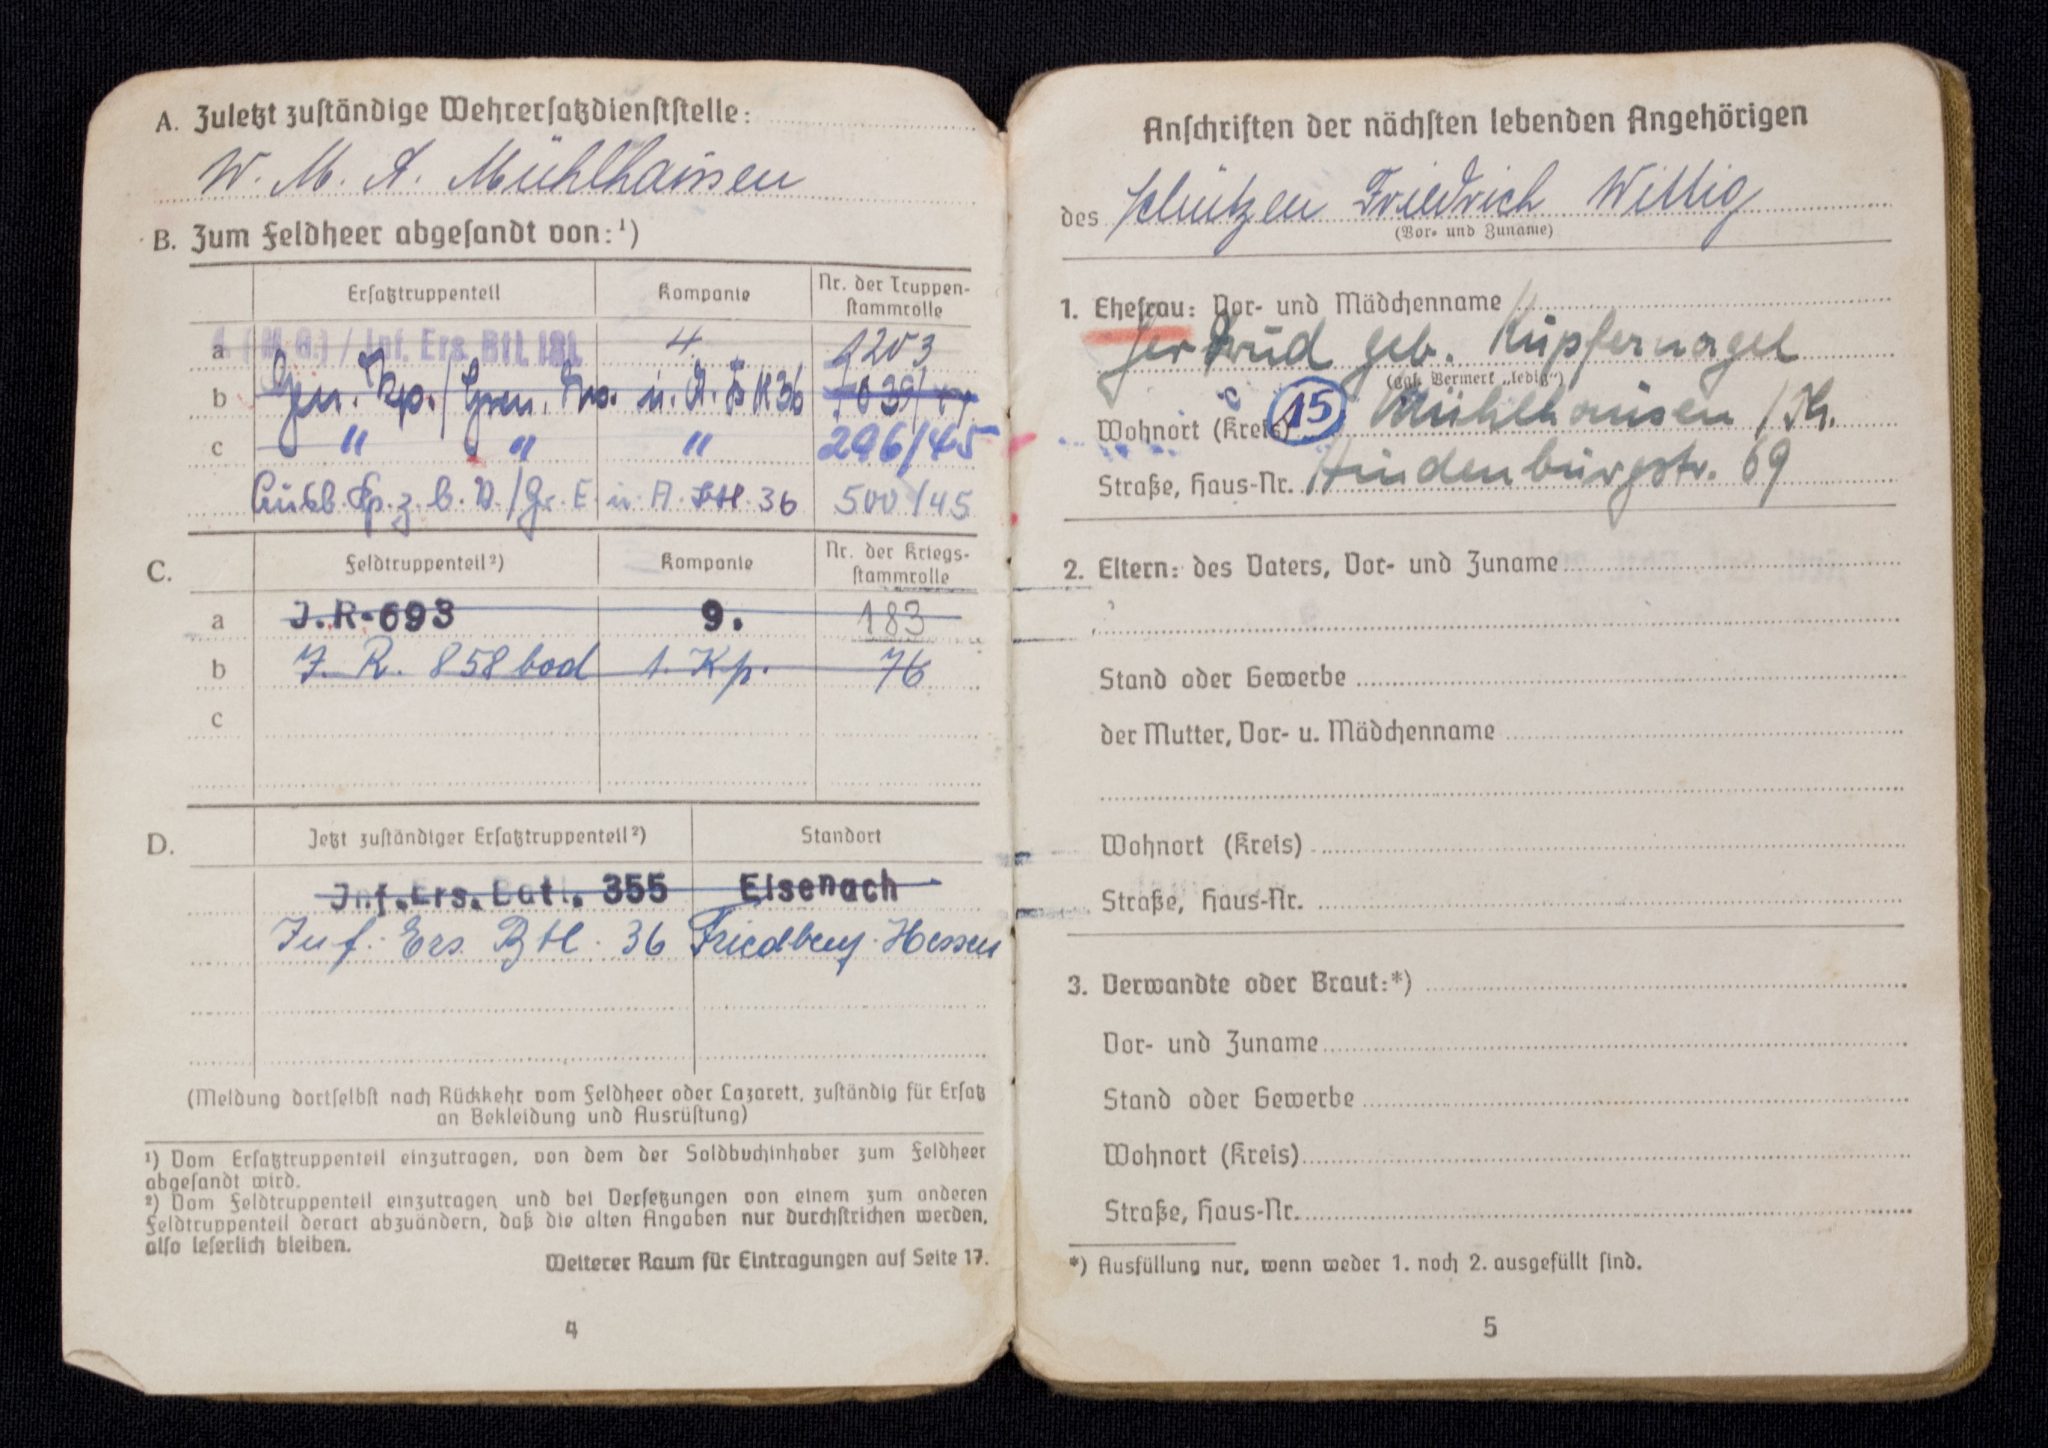 A. Zuletzt zuständige Wehrersatzdienststelle:
W. M. A. Mühlhausen
B. Zum Feldheer abgesandt von:¹)
Ersatztruppenteil Kompanie Nr. der Truppen-
stammrolle
a 4. (M.G.) / Inf. Ers. Btl. 181 4 1203
b Gen. Kp. / Gren. u. A. 36
c " " " 296/45
Ausb. Kp. z. b. V. / Gr. E. u. A. Btl. 36 500/45
C. Feldtruppenteil²) Kompanie Nr. der Kriegs-
stammrolle
a J.R.693 9. 183
b J. R. 858 bod 1. Kp. 76
c
D. Jetzt zuständiger Ersatztruppenteil²) Standort
Inf.Ers.Batl. 355 Eisenach
Inf. Ers. Btl. 36 Friedberg-Hessen
(Meldung dortselbst nach Rückkehr vom Feldheer oder Lazarett, zuständig für Ersatz
an Bekleidung und Ausrüstung)
¹) Vom Ersatztruppenteil einzutragen, von dem der Soldbuchinhaber zum Feldheer
abgesandt wird.
²) Vom Feldtruppenteil einzutragen und bei Versetzungen von einem zum anderen
Feldtruppenteil derart abzuändern, daß die alten Angaben nur durchstrichen werden,
also leserlich bleiben.
Weiterer Raum für Eintragungen auf Seite 17.
4
Anschriften der nächsten lebenden Angehörigen
des Schützen Friedrich Wittig
(Vor- und Zuname)
1. Ehefrau: Vor- und Mädchenname
Gertrud geb. Kupfernagel
(ggf. Vermerk „ledig")
Wohnort (Kreis) 15 Mühlhausen / Th.
Straße, Haus-Nr. Hindenburgstr. 69
2. Eltern: des Vaters, Vor- und Zuname
Stand oder Gewerbe
der Mutter, Vor- u. Mädchenname
Wohnort (Kreis)
Straße, Haus-Nr.
3. Verwandte oder Braut:*)
Vor- und Zuname
Stand oder Gewerbe
Wohnort (Kreis)
Straße, Haus-Nr.
*) Ausfüllung nur, wenn weder 1. noch 2. ausgefüllt sind.
5